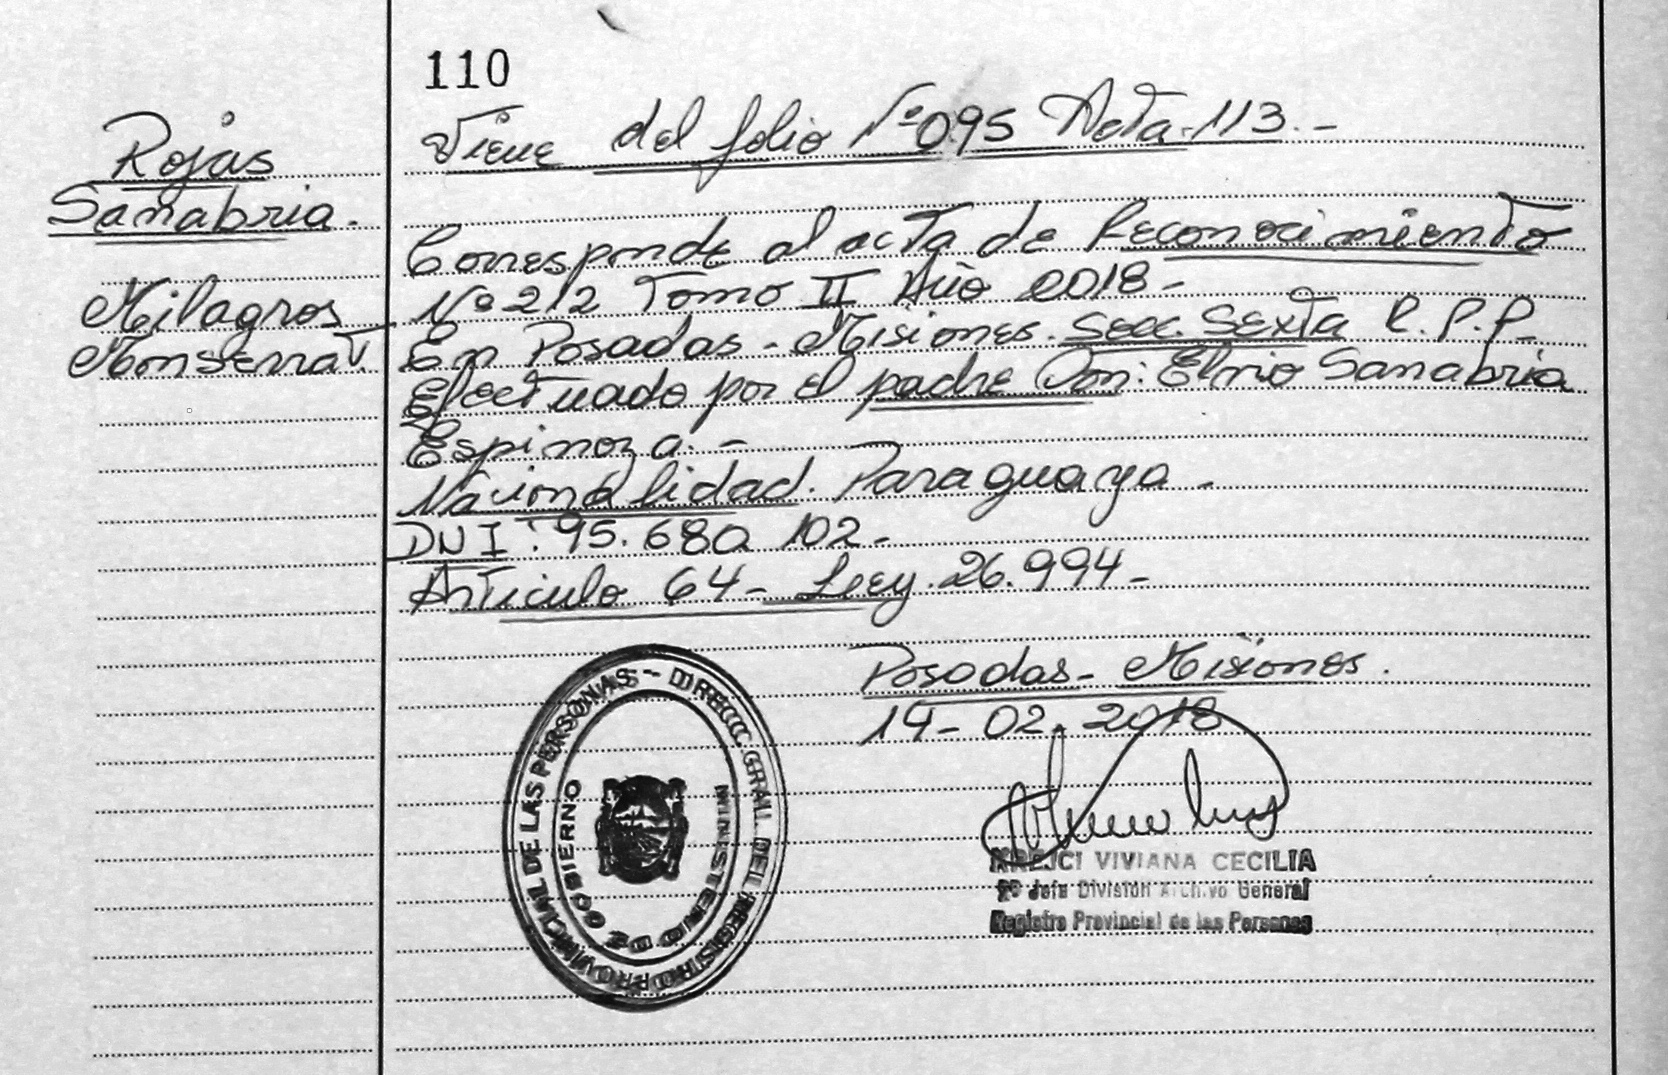 110
Rojas
Sanabria.
Milagros
Monserrat.
Viene del folio Nº 095 Acta 113.-
Corresponde al acta de Reconocimiento
Nº 212 Tomo II Año 2018-
En Posadas - Misiones. Secc. Sexta R.P.P.
Efectuado por el padre Don: Elvio Sanabria
Espinoza.-
Nacionalidad. Paraguaya-
DNI: 95.680.102-
Artículo 64- Ley 26.994-
Posadas- Misiones.
14-02-2018
KREJCI VIVIANA CECILIA
2º Jefe División Archivo General
Registro Provincial de las Personas
DIRECC. GRAL. DEL REGISTRO PROVINCIAL DE LAS PERSONAS -
MINISTERIO DE GOBIERNO